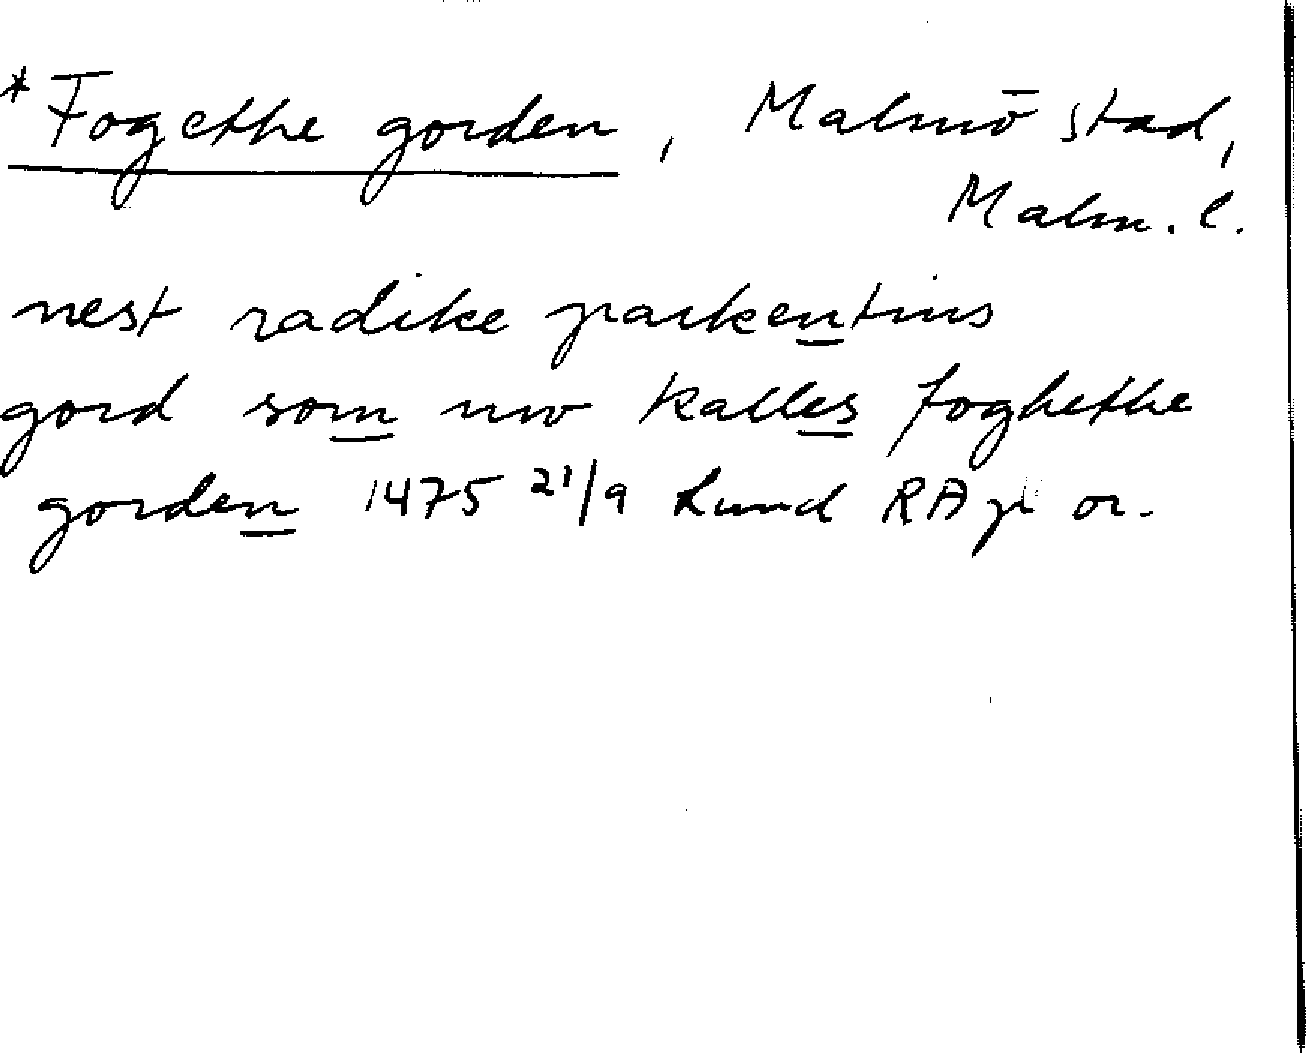 *Fogethe gorden, Malmö stad,
Malm. l.
nest radike parkentins
gord som nw kalles foghethe
gorden 1475 21/9 Lund RAp or.